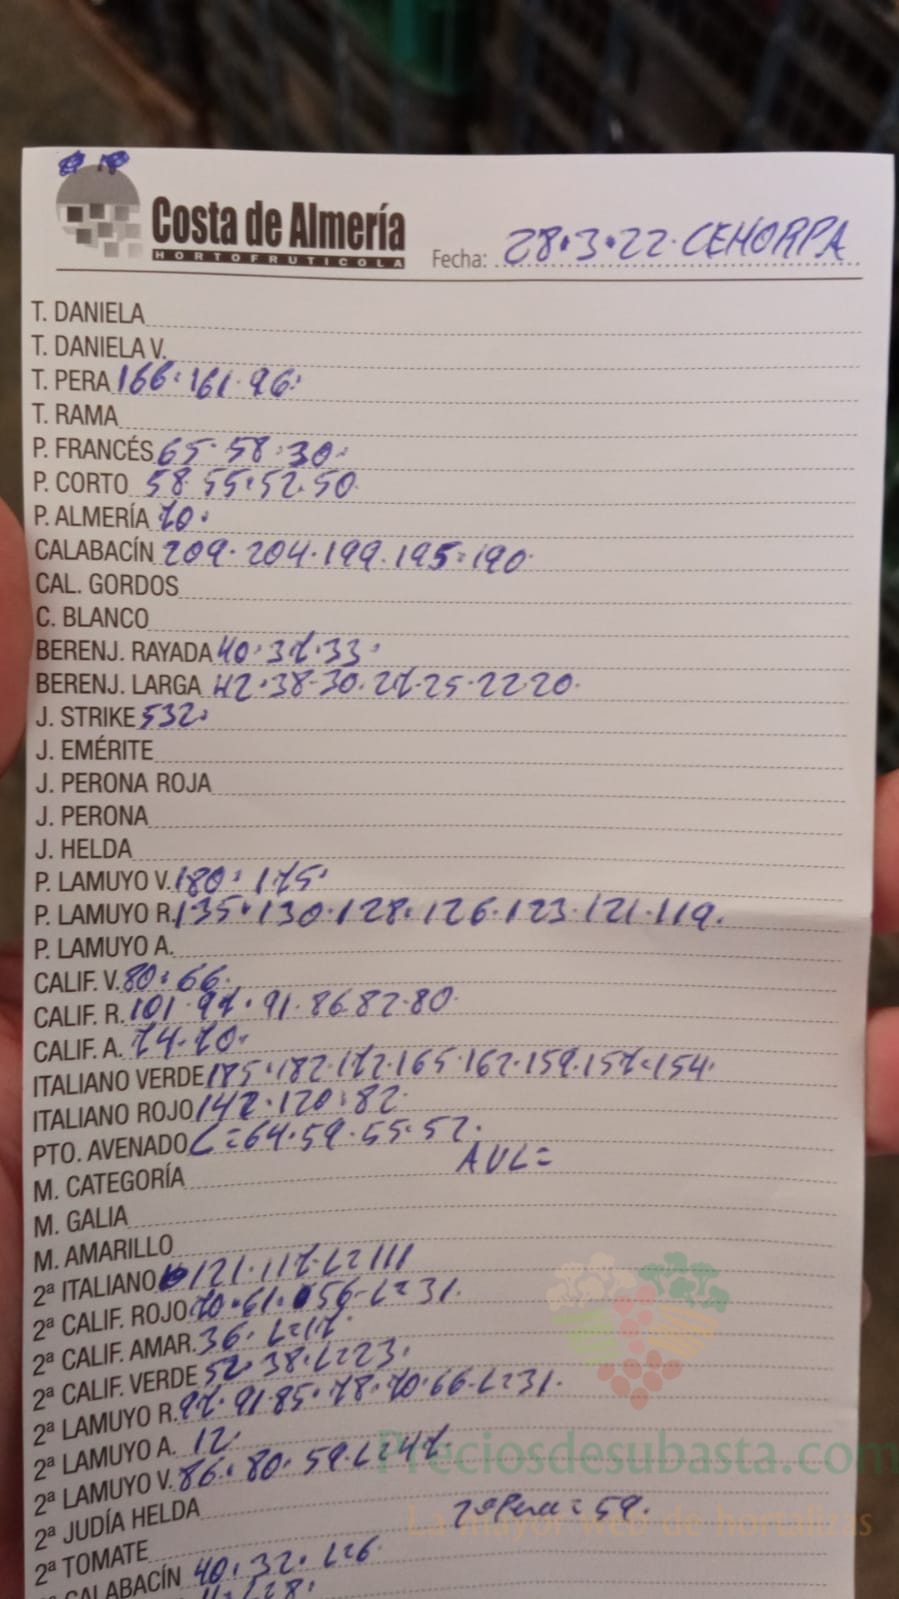 Costa de Almería
HORTOFRUTICOLA
Fecha: 28·3·22·CEHORPA
T. DANIELA
T. DANIELA V.
T. PERA 166·161·96·
T. RAMA
P. FRANCÉS 65·58·30·
P. CORTO 58·55·52·50
P. ALMERÍA 70·
CALABACÍN 209·204·199·195·190·
CAL. GORDOS
C. BLANCO
BERENJ. RAYADA 40·37·33·
BERENJ. LARGA 42·38·30·27·25·22·20·
J. STRIKE 532·
J. EMÉRITE
J. PERONA ROJA
J. PERONA
J. HELDA
P. LAMUYO V. 180·175·
P. LAMUYO R. 135·130·128·126·123·121·119·
P. LAMUYO A.
CALIF. V. 80·66·
CALIF. R. 101·97·91·86·82·80·
CALIF. A. 74·70·
ITALIANO VERDE 185·182·172·165·162·159·157·154·
ITALIANO ROJO 142·120·82·
PTO. AVENADO L=64·59·55·52·
AVL=
M. CATEGORÍA
M. GALIA
M. AMARILLO
2ª ITALIANO 121·117·L=111
2ª CALIF. ROJO 70·61·56·L=31·
2ª CALIF. AMAR. 36·L=17·
2ª CALIF. VERDE 52·38·L=23·
2ª LAMUYO R. 97·91·85·78·70·66·L=31·
2ª LAMUYO A. 12·
2ª LAMUYO V. 86·80·59·L=47
2ª JUDÍA HELDA
2ª Pera=59·
2ª TOMATE
CALABACÍN 40·32·L=6·
L=8·
Preciosdesubasta.com
La mayor web de hortalizas